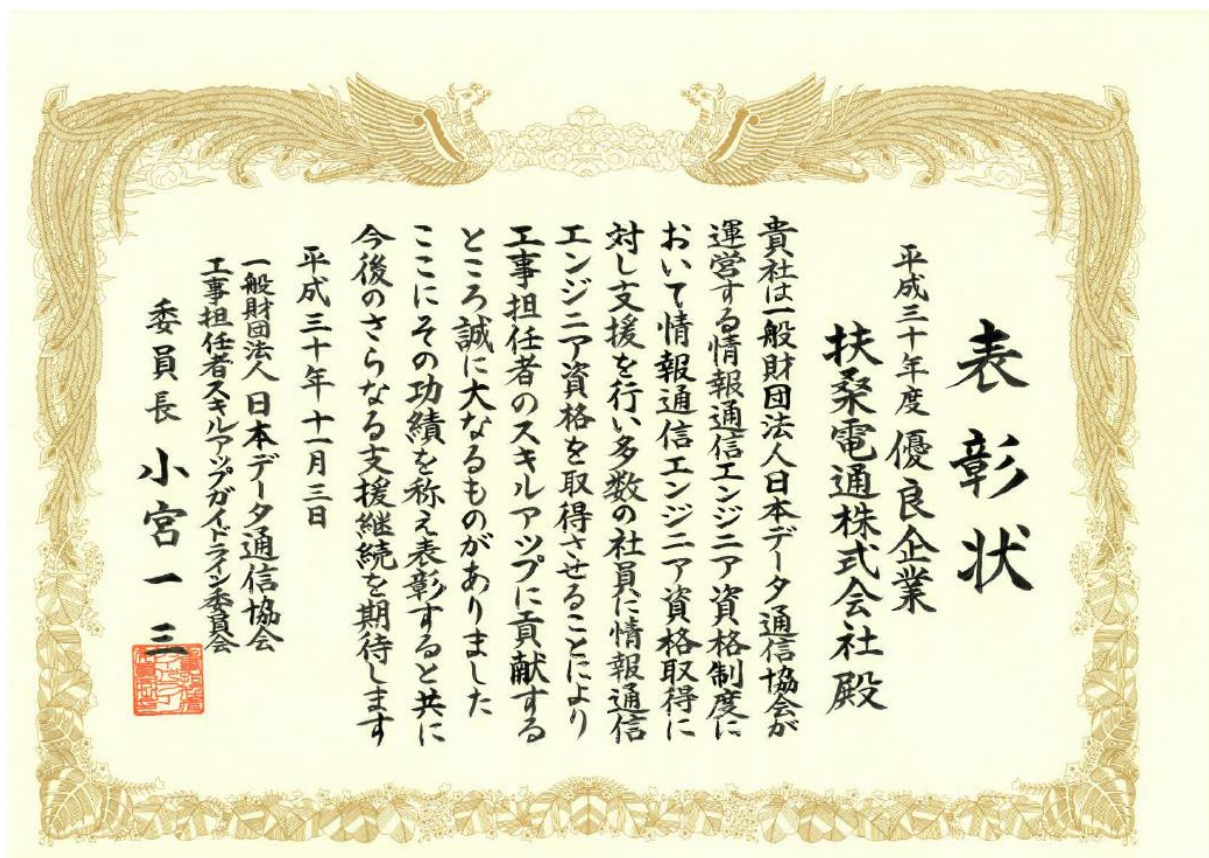 表彰状
平成三十年度 優良企業
扶桑電通株式会社殿
貴社は一般財団法人日本データ通信協会が
運営する情報通信エンジニア資格制度に
おいて情報通信エンジニア資格取得に
対し支援を行い多数の社員に情報通信
エンジニア資格を取得させることにより
工事担任者のスキルアップに貢献する
ところ誠に大なるものがありました
ここにその功績を称え表彰すると共に
今後のさらなる支援継続を期待します
平成三十年十一月三日
一般財団法人日本データ通信協会
工事担任者スキルアップガイドライン委員会
委員長 小宮一三